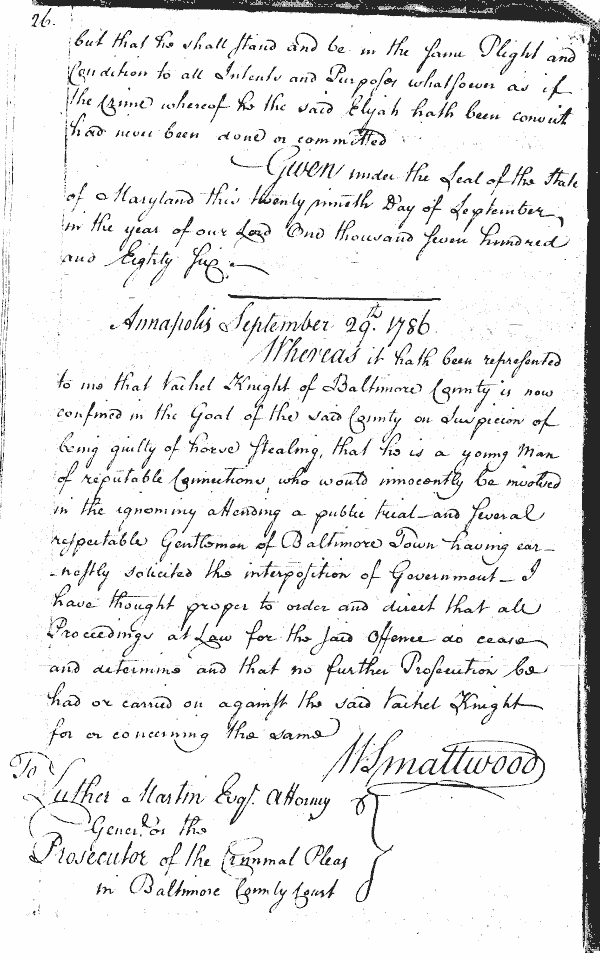 26.
but that he shall stand and be in the same Plight and
Condition to all Intents and Purposes whatsoever as if
the Crime whereof he the said Elijah hath been convict
had never been done or committed
Given under the Seal of the State
of Maryland this twenty ninth Day of September
in the year of our Lord One thousand seven hundred
and Eighty Six.
Annapolis September 29th. 1786
Whereas it hath been represented
to me that Vachel Knight of Baltimore County is now
confined in the Goal of the said County on Suspicion of
being guilty of horse stealing, that he is a young Man
of reputable Connections, who would innocently be involved
in the ignominy attending a public trial - and several
respectable Gentlemen of Baltimore Town having ear-
-nestly solicited the interposition of Government - I
have thought proper to order and direct that all
Proceedings at Law for the said Offence do cease
and determine and that no further Prosecution be
had or carried on against the said Vachel Knight
for or concerning the same
W Smallwood
To
Luther Martin Esqr. Attorney
Generl. or the
Prosecutor of the Criminal Pleas
in Baltimore County Court